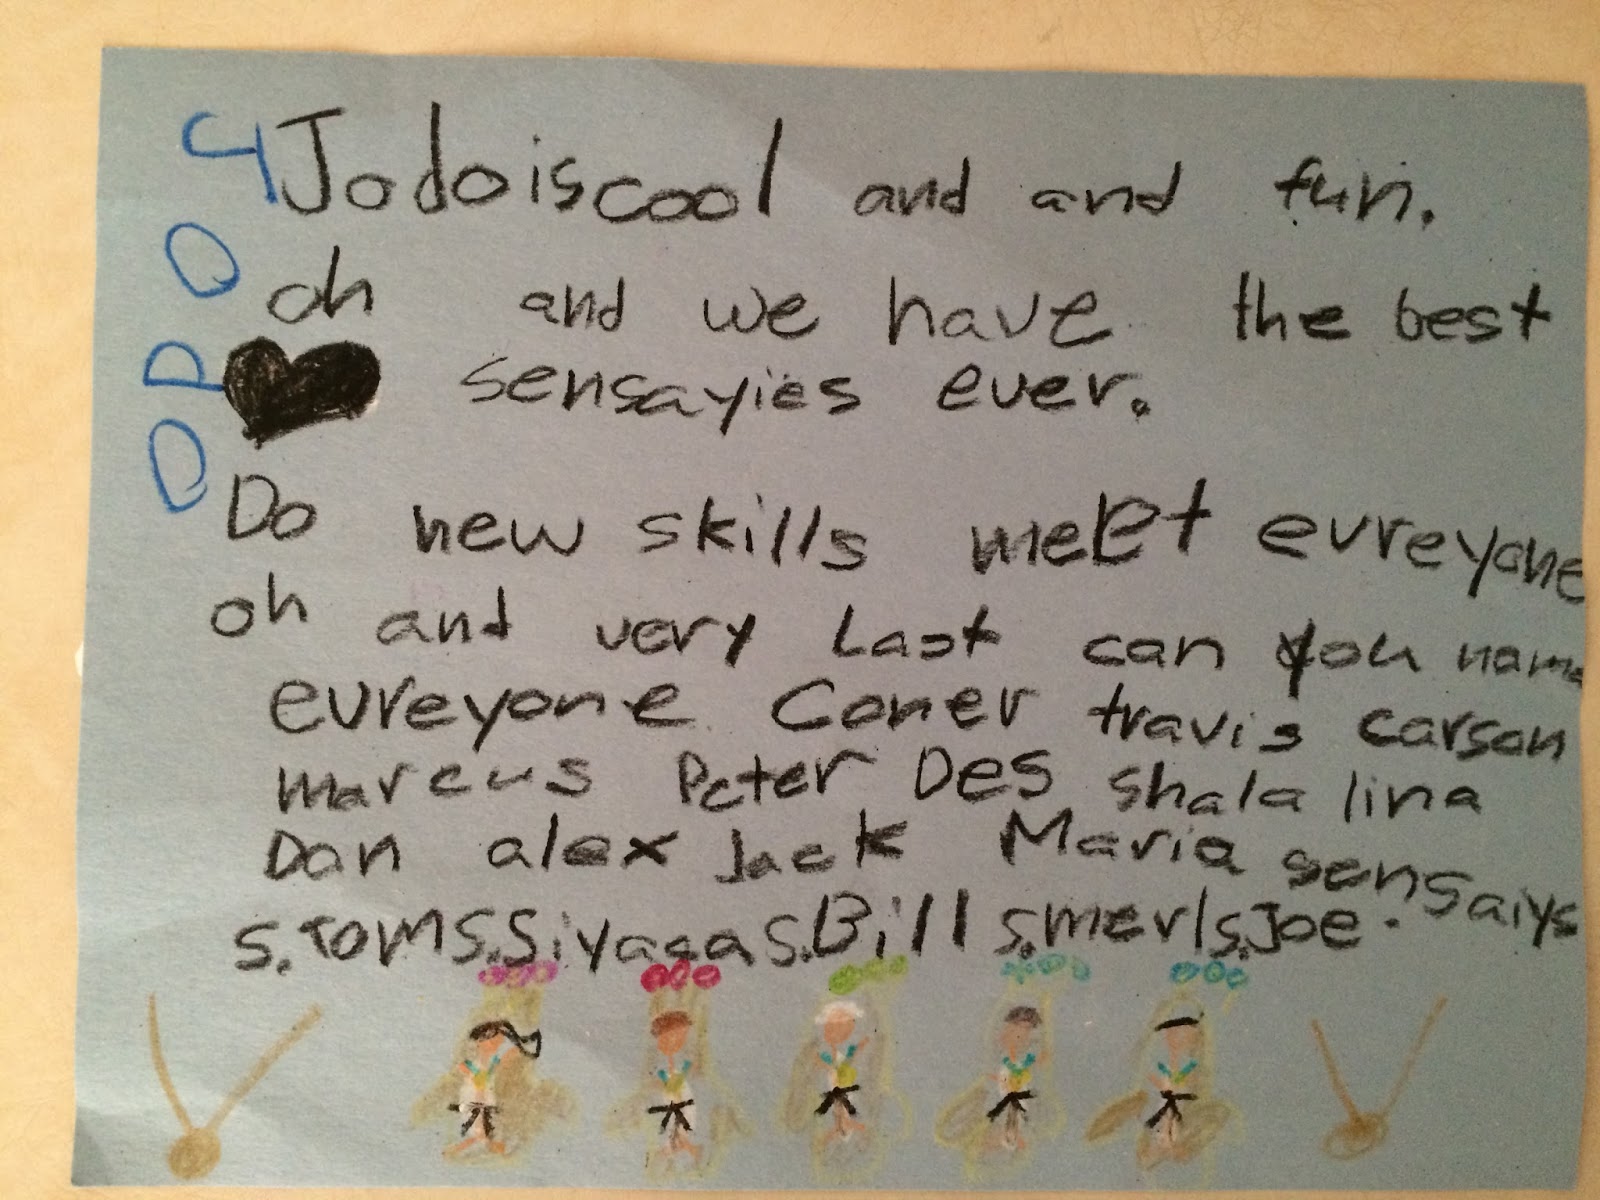 JODO
Jodo is cool and and fun.
oh and we have the best
sensayies ever.
Do new skills meet evreyone
oh and very Last can you name
evreyone Coner travis carson
marcus Peter Des shala lina
Dan alex Jack Maria sensaiys
s.Tom s. s.Bill s.merl s.Joe.